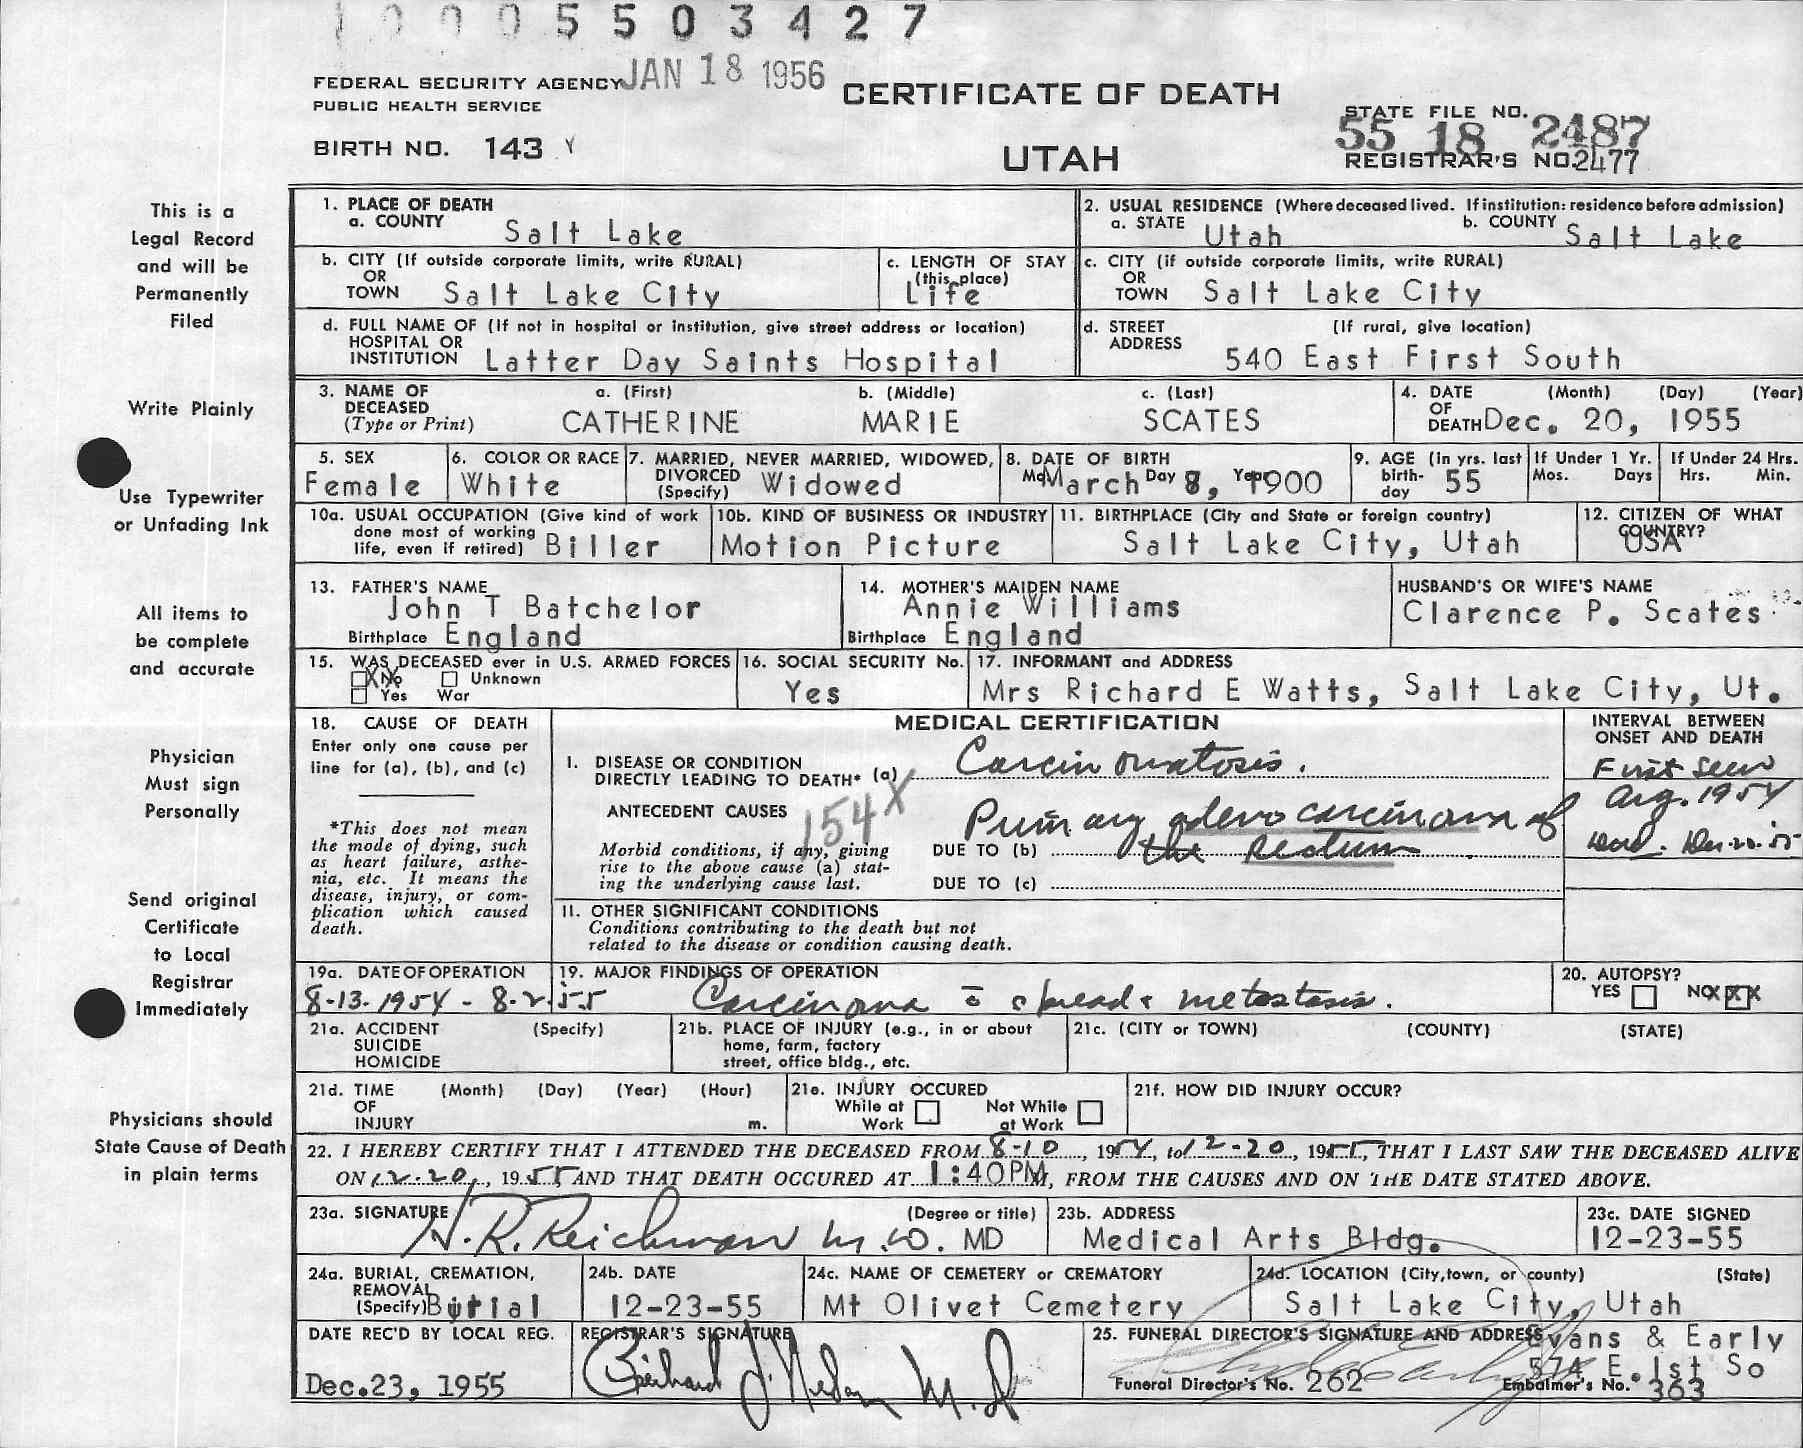 1 0 0 0 5 5 0 3 4 2 7
FEDERAL SECURITY AGENCY JAN 18 1956 CERTIFICATE OF DEATH
PUBLIC HEALTH SERVICE
STATE FILE NO.
55 18 2487
BIRTH NO. 143
UTAH
REGISTRAR'S NO. 2477
This is a
Legal Record
and will be
Permanently
Filed
Write Plainly
Use Typewriter
or Unfading Ink
All items to
be complete
and accurate
Physician
Must sign
Personally
Send original
Certificate
to Local
Registrar
Immediately
Physicians should
State Cause of Death
in plain terms
1. PLACE OF DEATH
a. COUNTY Salt Lake
2. USUAL RESIDENCE (Where deceased lived. If institution: residence before admission)
a. STATE Utah b. COUNTY Salt Lake
b. CITY (If outside corporate limits, write RURAL)
OR
TOWN Salt Lake City
c. LENGTH OF STAY
(this place)
Life
c. CITY (if outside corporate limits, write RURAL)
OR
TOWN Salt Lake City
d. FULL NAME OF (If not in hospital or institution, give street address or location)
HOSPITAL OR
INSTITUTION Latter Day Saints Hospital
d. STREET (If rural, give location)
ADDRESS 540 East First South
3. NAME OF a. (First) b. (Middle) c. (Last)
DECEASED
(Type or Print) CATHERINE MARIE SCATES
4. DATE (Month) (Day) (Year)
OF
DEATH Dec. 20, 1955
5. SEX
Female
6. COLOR OR RACE
White
7. MARRIED, NEVER MARRIED, WIDOWED,
DIVORCED
(Specify) Widowed
8. DATE OF BIRTH
March Day 8, 1900
9. AGE (in yrs. last
birth-
day 55
If Under 1 Yr.
Mos. Days
If Under 24 Hrs.
Hrs. Min.
10a. USUAL OCCUPATION (Give kind of work
done most of working
life, even if retired) Biller
10b. KIND OF BUSINESS OR INDUSTRY
Motion Picture
11. BIRTHPLACE (City and State or foreign country)
Salt Lake City, Utah
12. CITIZEN OF WHAT
COUNTRY?
USA
13. FATHER'S NAME
John T Batchelor
Birthplace England
14. MOTHER'S MAIDEN NAME
Annie Williams
Birthplace England
HUSBAND'S OR WIFE'S NAME
Clarence P. Scates
15. WAS DECEASED ever in U.S. ARMED FORCES
XX No Unknown
Yes War
16. SOCIAL SECURITY No.
Yes
17. INFORMANT and ADDRESS
Mrs Richard E Watts, Salt Lake City, Ut.
18. CAUSE OF DEATH
Enter only one cause per
line for (a), (b), and (c)
*This does not mean
the mode of dying, such
as heart failure, asthe-
nia, etc. It means the
disease, injury, or com-
plication which caused
death.
MEDICAL CERTIFICATION
I. DISEASE OR CONDITION
DIRECTLY LEADING TO DEATH* (a) Carcinomatosis.
ANTECEDENT CAUSES 154X
Morbid conditions, if any, giving
rise to the above cause (a) stat-
ing the underlying cause last.
Primary adenocarcinoma of
DUE TO (b) the rectum
DUE TO (c)
INTERVAL BETWEEN
ONSET AND DEATH
First seen
Aug. 1954
II. OTHER SIGNIFICANT CONDITIONS
Conditions contributing to the death but not
related to the disease or condition causing death.
19a. DATE OF OPERATION
8-13-1954 - 8-2-55
19. MAJOR FINDINGS OF OPERATION
Carcinoma c̄ spread & metastasis.
20. AUTOPSY?
YES NO XXX
21a. ACCIDENT (Specify)
SUICIDE
HOMICIDE
21b. PLACE OF INJURY (e.g., in or about
home, farm, factory
street, office bldg., etc.
21c. (CITY or TOWN) (COUNTY) (STATE)
21d. TIME (Month) (Day) (Year) (Hour)
OF
INJURY m.
21e. INJURY OCCURED
While at Not While
Work at Work
21f. HOW DID INJURY OCCUR?
22. I HEREBY CERTIFY THAT I ATTENDED THE DECEASED FROM 8-10, 1954, to 12-20, 1955, THAT I LAST SAW THE DECEASED ALIVE
ON 12-20, 1955 AND THAT DEATH OCCURED AT 1:40PM, FROM THE CAUSES AND ON THE DATE STATED ABOVE.
23a. SIGNATURE (Degree or title)
H. R. Reichman M.D. MD
23b. ADDRESS
Medical Arts Bldg.
23c. DATE SIGNED
12-23-55
24a. BURIAL, CREMATION,
REMOVAL
(Specify) Burial
24b. DATE
12-23-55
24c. NAME OF CEMETERY or CREMATORY
Mt Olivet Cemetery
24d. LOCATION (City, town, or county) (State)
Salt Lake City, Utah
DATE REC'D BY LOCAL REG.
Dec.23, 1955
REGISTRAR'S SIGNATURE
M.D.
25. FUNERAL DIRECTOR'S SIGNATURE AND ADDRESS Evans & Early
574 E. 1st So
Funeral Director's No. 262 Embalmer's No. 363